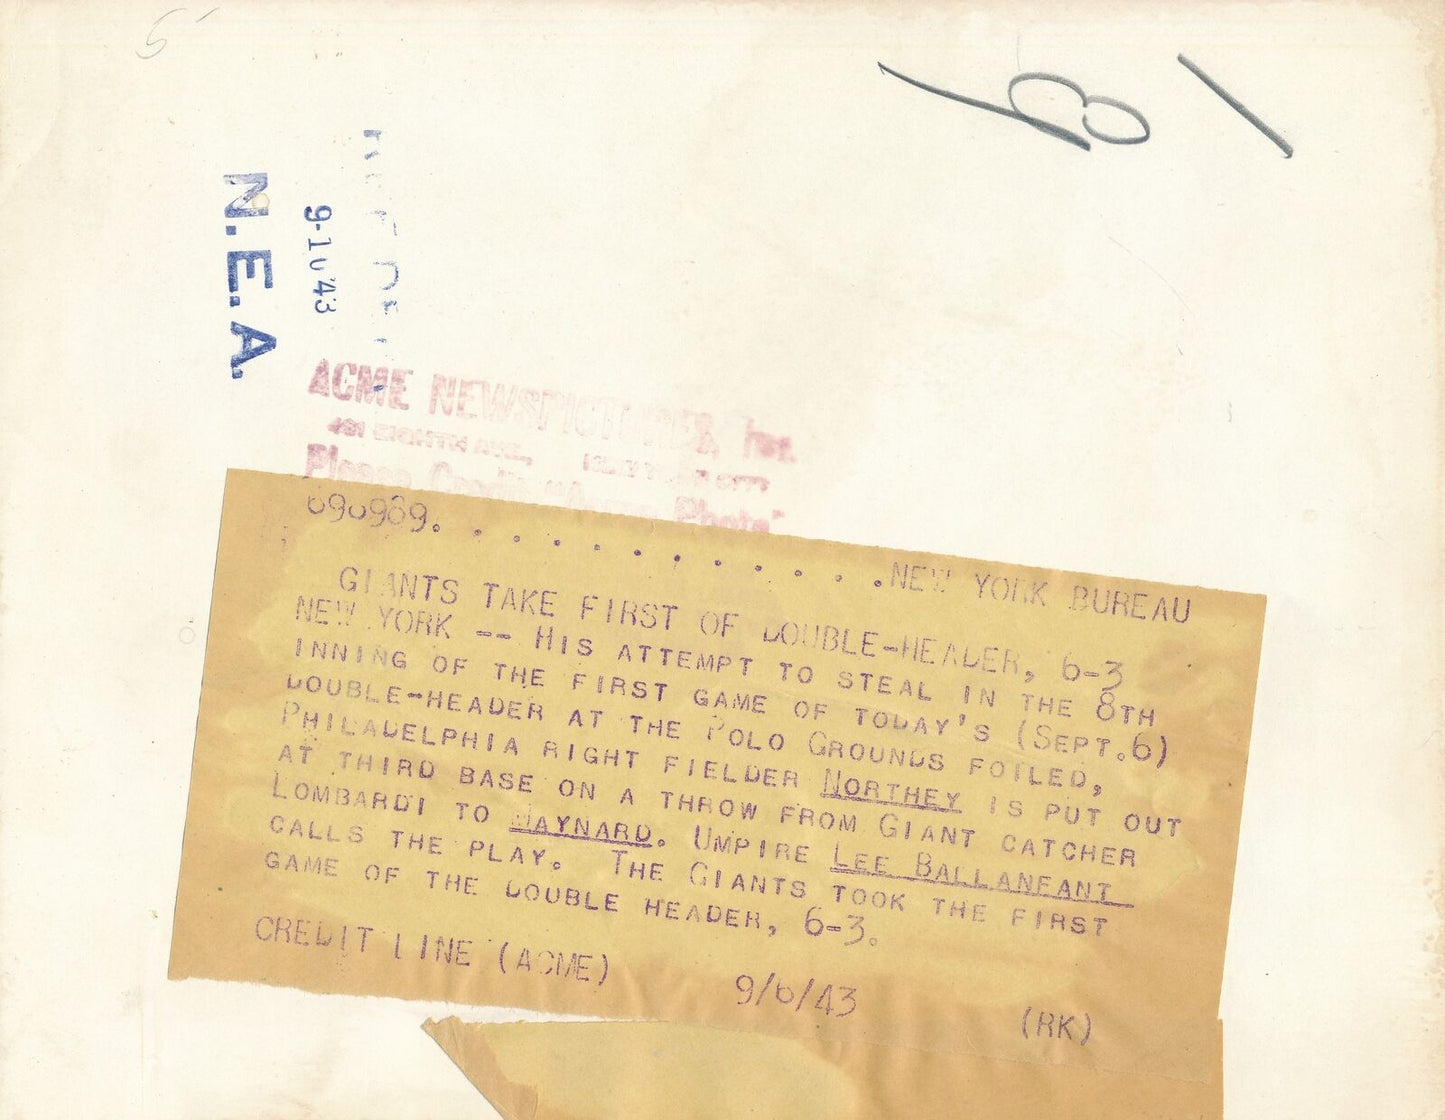 5
8
1
N.E.A.
9-10'43
ACME NEWSPICTURES, Inc.
461 EIGHTH AVE., NEW YORK CITY
Please Credit "Acme Photo"
NEW YORK BUREAU
GIANTS TAKE FIRST OF DOUBLE-HEADER, 6-3
NEW YORK -- HIS ATTEMPT TO STEAL IN THE 8TH
INNING OF THE FIRST GAME OF TODAY'S (SEPT.6)
DOUBLE-HEADER AT THE POLO GROUNDS FOILED,
PHILADELPHIA RIGHT FIELDER NORTHEY IS PUT OUT
AT THIRD BASE ON A THROW FROM GIANT CATCHER
LOMBARDI TO MAYNARD. UMPIRE LEE BALLANFANT
CALLS THE PLAY. THE GIANTS TOOK THE FIRST
GAME OF THE DOUBLE HEADER, 6-3.
CREDIT LINE (ACME) 9/6/43 (RK)